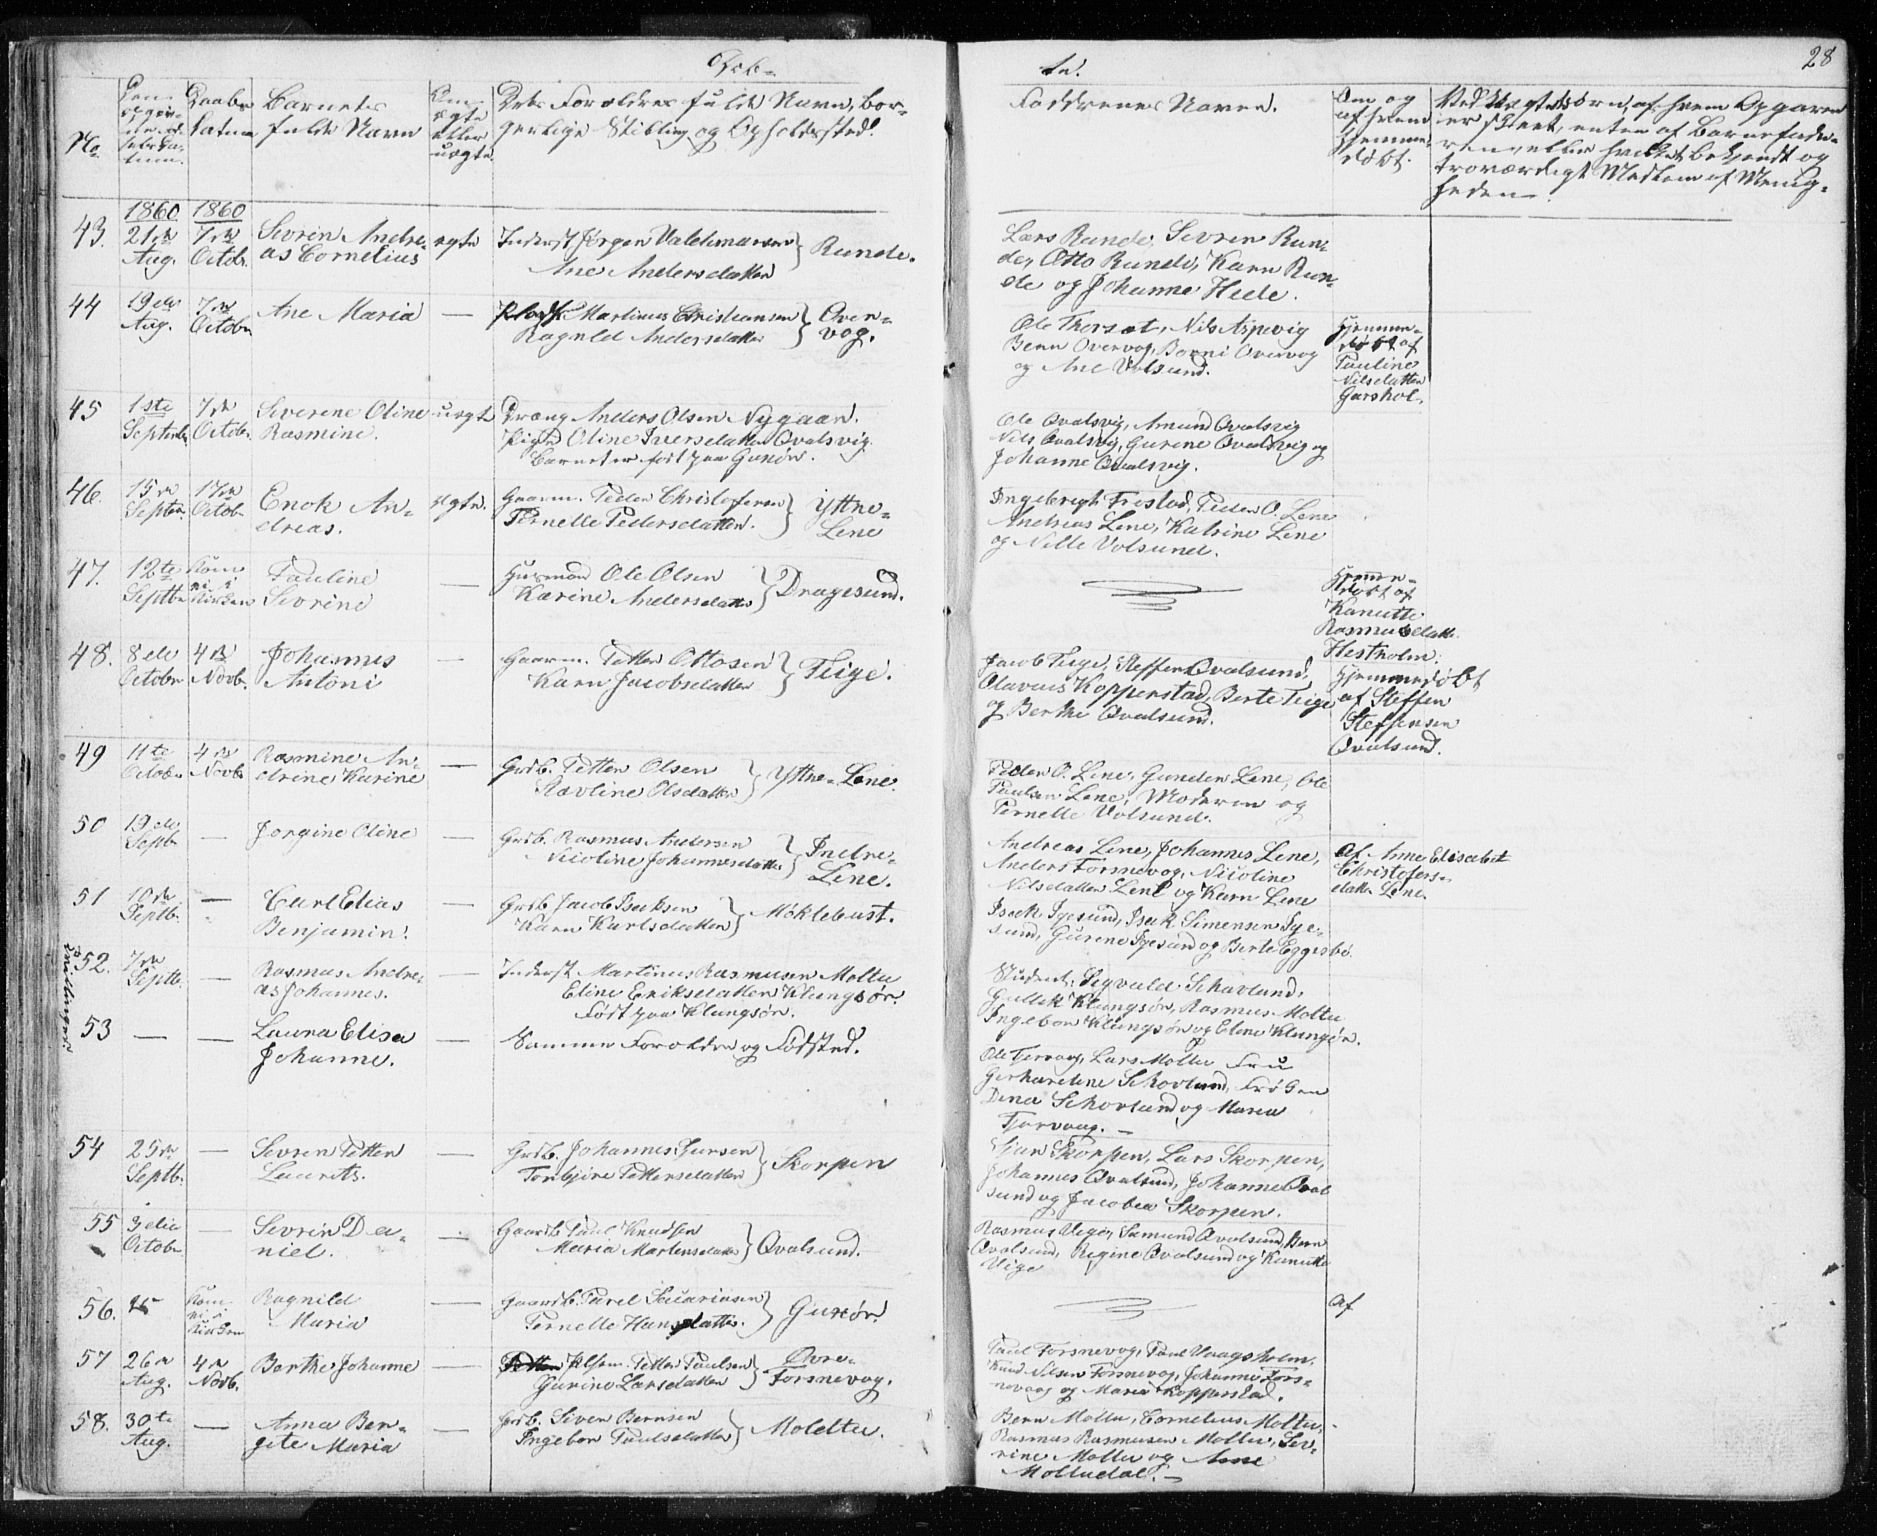 Døb-
te.
28
No.
Barnets
fulde Navn
Forældres fulde Navn, bor-
gerlige Stilling og Opholdssted.
Faddrenes Navne.
43.
1860
21de
Aug.
1860
7de
Octob.
Sevrin Andre-
as Cornelius
ægte
Inderst Jørgen Valdemarsen
Ane Andersdatter
Runde.
Lars Runde, Sevren Run-
de, Otto Runde, Karn Run-
de og Johanne Heide.
44
19de
Aug.
7de
Octobr
Ane Maria
—
Martinus Christiansen
Ragnild Andersdatter
Over-
vog.
Ole Thorsæt, Nils Aspevig
Bern Overvog, Berni Overvog
og Ane Volsund.
Hjemme-
døbt af
Pauline
Nilsdatter
Garshol.
45
1ste
Septembr
7de
Octobr
Severine Oline
Rasmine.
uægte
Dreng Anders Olsen Nygaard.
Pige Oline Iversdatter Qvalsvig.
Barnet er født paa Gursør.
Ole Qvalsvig, Amund Qvalsvig
Nils Qvalsvig, Gurine Qvalsvig og
Johanne Qvalsvig.
46.
15de
Septbr
17de
Octob.
Enok An-
dreas.
ægte.
Gaarm. Peder Christofersen
Pernelle Pedersdatter.
Yttre-
Lene
Ingebregt Frestad, Peder O. Lene
Andreas Lene, Katrine Lene
og Nille Volsund.
47.
12te
Septbr
Kom
ei i
Kirken
Pauline
Sevrine
—
Husmand Ole Olsen
Karine Andersdatter
Dragesund.
Hjemme-
døbt af
Kanutte
Rasmusdatter
Hestholm.
48.
8de
Octobr
4de
Novb.
Johannes
Antoni
—
Gaarm. Petter Ottosen
Karn Jacobsdatter
Teige.
Jacob Teige, Steffen Qvalsund,
Olavus Kopperstad, Berte Teige
og Berthe Qvalsund.
Hjemmedøbt
af Steffen
Steffensen
Qvalsund.
49
11te
Octobr
4de
Novb.
Rasmine An-
drine Karine
—
Grdb. Petter Olsen
Olsdatter
Yttre-Lene.
Peder O. Lene, Gunder Lene, Ole
Paulsen Lene, Moderen og
Pernelle Volsund.
50
19de
Septb.
—
Jorgine Oline
—
Grdb. Rasmus Andersen
Nicoline Johannesdatter
Indre-
Lene.
Andreas Lene, Johannes Lene,
Anders Forsnevog, Nicoline
Nilsdatter Lene og Karn Lene
Af Anne Elisabet
Christofers-
datter Lene.
51
10de
Septb.
—
Carl Elias
Benjamin.
—
Grdb Jacob Isaksen
Karn Karlsdatter
Møklebust.
Isack Igesund, Isak Simensen Ige-
sund, Gurine Igesund og Berte Eggesbø.
Tvillinger
52.
7de
Septb.
—
Rasmus Andre-
as Johannes.
—
Inderst Martinus Rasmussen Moltu
Eline Eriksdatter Klungsør.
Født paa Klungsør.
Student Sigvald Schavland,
Gullik Klungsør, Rasmus Moltu
Ingebor Klungsør og Eline Klungsør.
53
—
—
Laura Elisa
Johanne.
—
Samme Forældre og Fødested.
Ole Tervog, Lars Moltu Fru
Gerhardine Schovland, Frøken
Dina Schovland og Maria
Tjervaag. —
54
25de
Septb.
—
Sevren Petter
Laurits.
—
Grdb. Johannes Gursen
Torbjøre Pettersdatter
Skorpen
Sjur Skorpen, Lars Skorpen,
Johannes Qvalsund, Johanne Qval
sund og Jacobea Skorpen.
55
3die
Octobr
—
Sevrin Da-
niel.
—
Gaardb. Paul Knudsen
Maria Martensdatter
Qvalsund.
Rasmus Vige, Samund Qvalsund, Bern
Qvalsund, Regine Qvalsund og Kanutte
Vige
56.
Kom
ei i
Kirken
Ragnild
Maria
—
Gaardb. Povel Sacariasen
Pernelle Hansdatter.
Gursør.
Af
57
26de
Aug.
4de
Novb.
Berthe Johanne
—
Petter Paulsen
Gurine Larsdatter
Øvre-
Forsnevog.
Paul Forsnevog, Paul Vaagsholm,
Knud Nilsen Forsnevog, Johanne Fors-
nevaag og Maria Kopperstad.
58.
30te
Aug.
—
Anna Ber-
gite Maria
—
Grdb. Siver Bernsen
Ingebor Paulsdatter
Moldtu.
Bern Moltu, Cornelius Moltu,
Rasmus Rasmusen Moltu, Sev-
rine Moltu og Ane
Moltudal. —